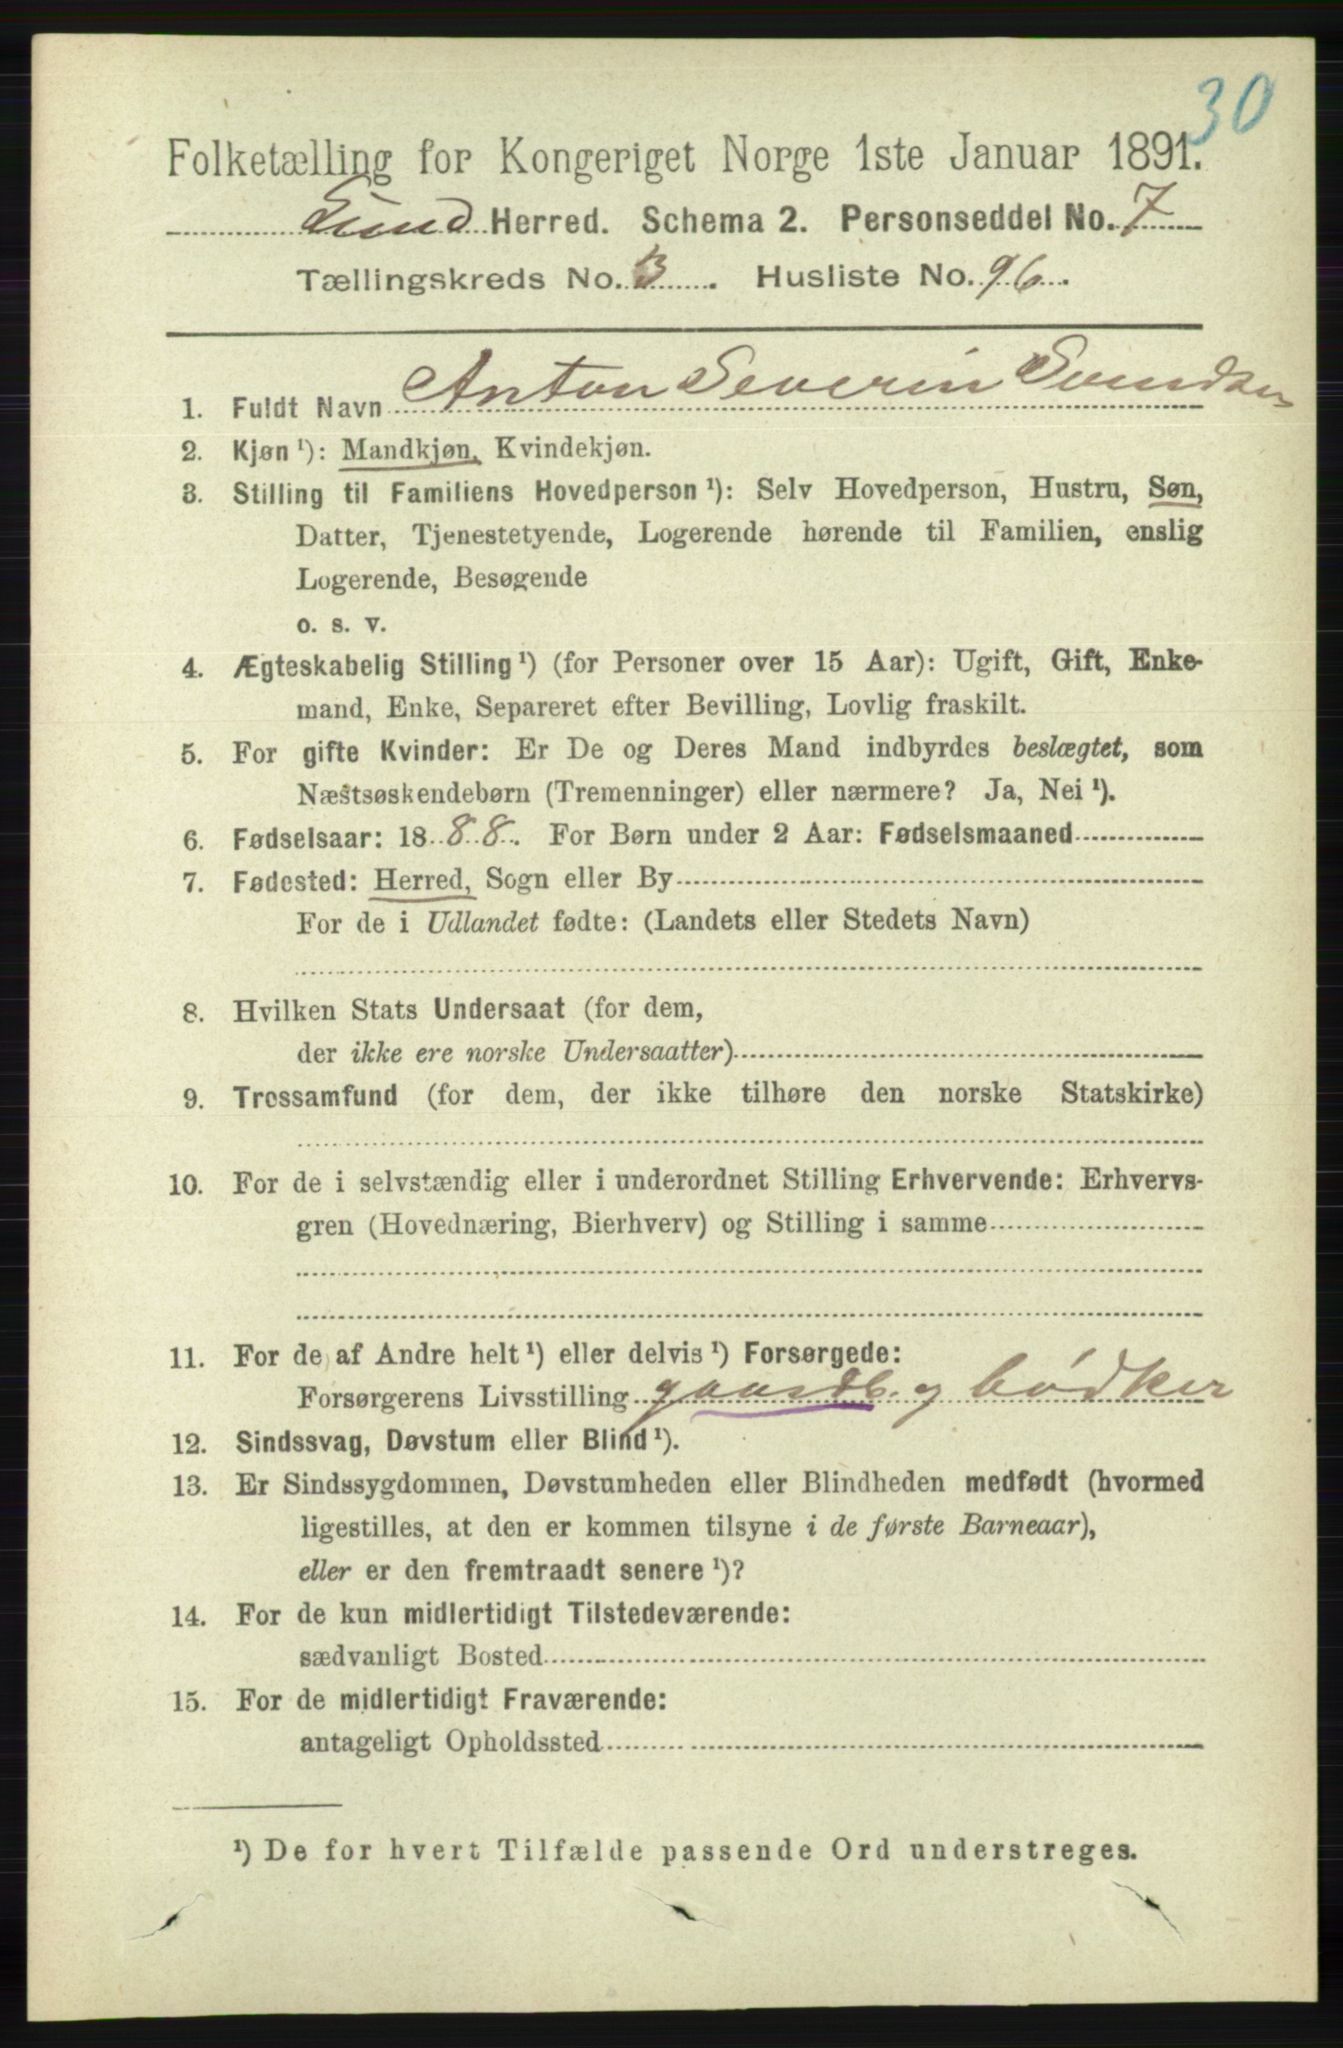 30
Folketælling for Kongeriget Norge 1ste Januar 1891.
Lund Herred. Schema 2. Personseddel No. 7
Tællingskreds No. 3. Husliste No. 96.
1. Fuldt Navn Anton Severin Svendsen
2. Kjøn ¹): Mandkjøn, Kvindekjøn.
3. Stilling til Familiens Hovedperson ¹): Selv Hovedperson, Hustru, Søn,
Datter, Tjenestetyende, Logerende hørende til Familien, enslig
Logerende, Besøgende
o. s. v.
4. Ægteskabelig Stilling ¹) (for Personer over 15 Aar): Ugift, Gift, Enke-
mand, Enke, Separeret efter Bevilling, Lovlig fraskilt.
5. For gifte Kvinder: Er De og Deres Mand indbyrdes beslægtet, som
Næstsøskendebørn (Tremenninger) eller nærmere? Ja, Nei ¹).
6. Fødselsaar: 1888. For Børn under 2 Aar: Fødselsmaaned
7. Fødested: Herred, Sogn eller By
For de i Udlandet fødte: (Landets eller Stedets Navn)
8. Hvilken Stats Undersaat (for dem,
der ikke ere norske Undersaatter)
9. Trossamfund (for dem, der ikke tilhøre den norske Statskirke)
10. For de i selvstændig eller i underordnet Stilling Erhvervende: Erhvervs-
gren (Hovednæring, Bierhverv) og Stilling i samme
11. For de af Andre helt ¹) eller delvis ¹) Forsørgede:
Forsørgerens Livsstilling gaardb. og bødker
12. Sindssvag, Døvstum eller Blind ¹).
13. Er Sindssygdommen, Døvstumheden eller Blindheden medfødt (hvormed
ligestilles, at den er kommen tilsyne i de første Barneaar),
eller er den fremtraadt senere ¹)?
14. For de kun midlertidigt Tilstedeværende:
sædvanligt Bosted
15. For de midlertidigt Fraværende:
antageligt Opholdssted
¹) De for hvert Tilfælde passende Ord understreges.